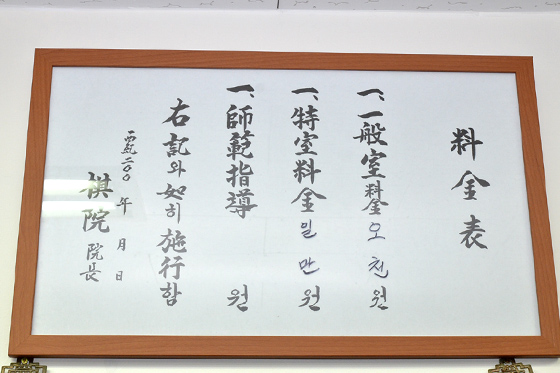 料金表
一、一般室料金 오천원
一、特室料金 일만원
一、師範指導 원
右記와 如히 施行함
西紀二○○ 年 月 日
棋院 院長